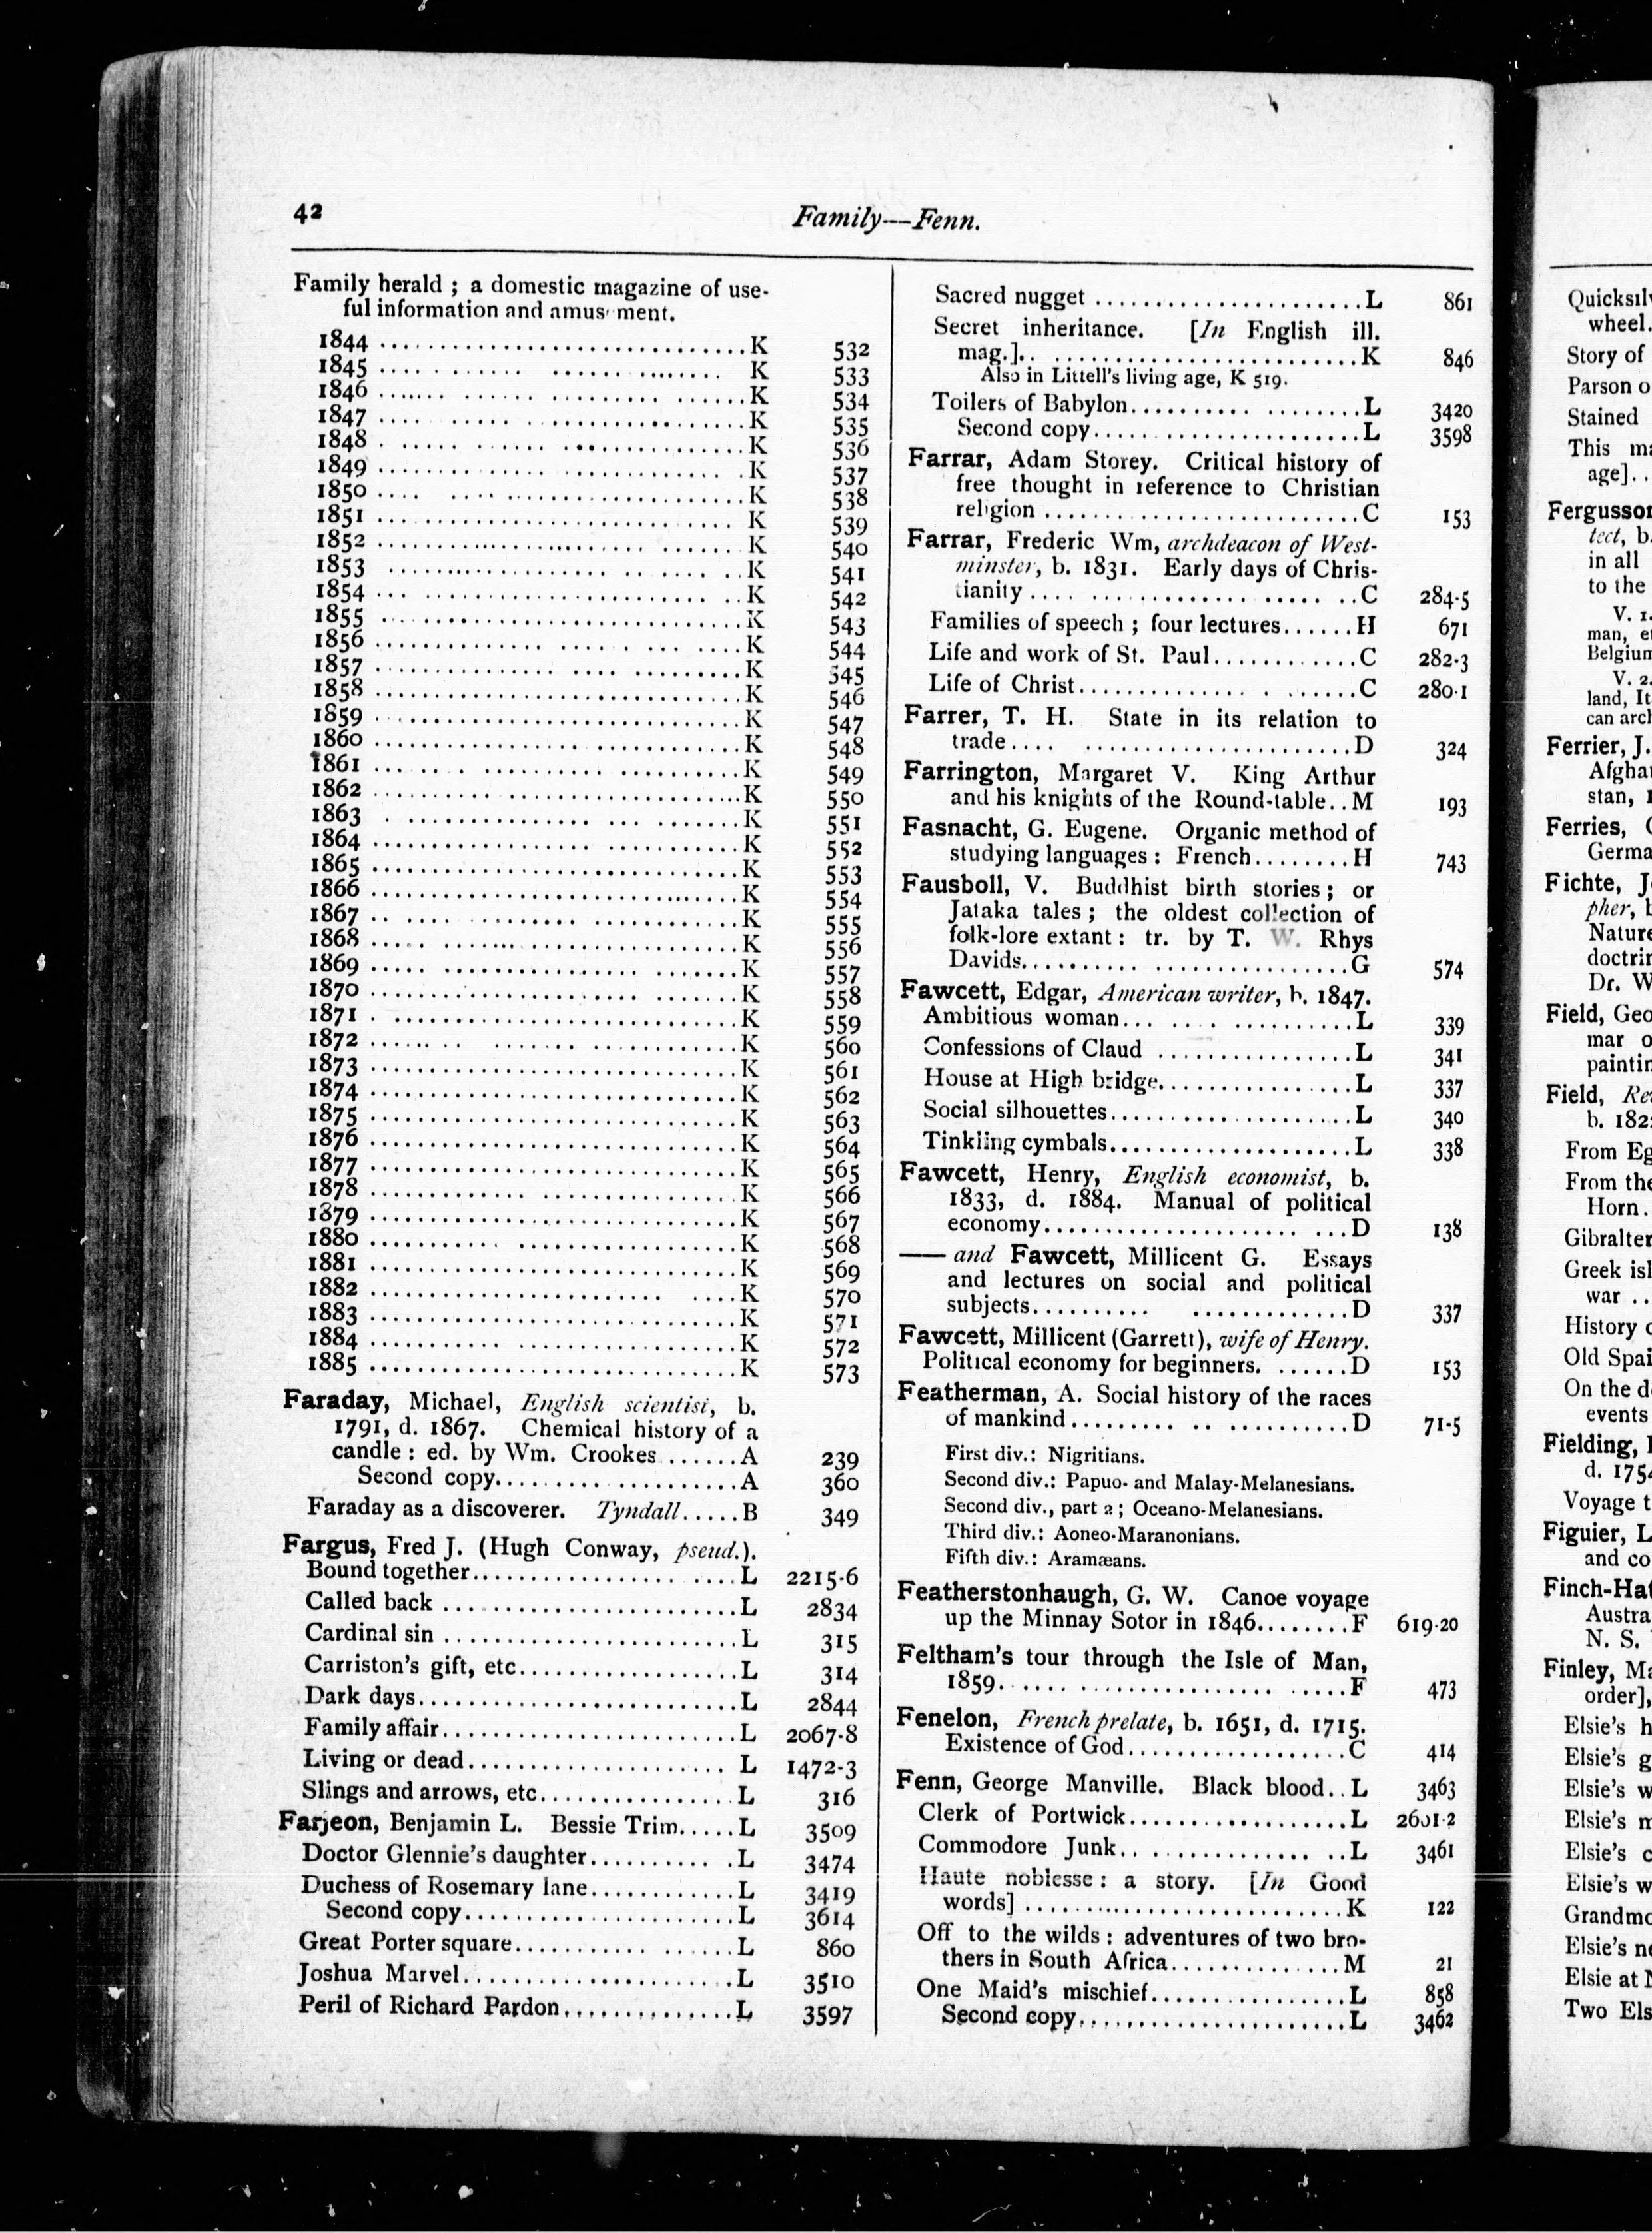 42
Family—Fenn.
Family herald ; a domestic magazine of use-
ful information and amus ment.
1844 .... K 532
1845 .... K 533
1846 .... K 534
1847 .... K 535
1848 .... K 536
1849 .... K 537
1850 .... K 538
1851 .... K 539
1852 .... K 540
1853 .... K 541
1854 .... K 542
1855 .... K 543
1856 .... K 544
1857 .... K 545
1858 .... K 546
1859 .... K 547
1860 .... K 548
1861 .... K 549
1862 .... K 550
1863 .... K 551
1864 .... K 552
1865 .... K 553
1866 .... K 554
1867 .... K 555
1868 .... K 556
1869 .... K 557
1870 .... K 558
1871 .... K 559
1872 .... K 560
1873 .... K 561
1874 .... K 562
1875 .... K 563
1876 .... K 564
1877 .... K 565
1878 .... K 566
1879 .... K 567
1880 .... K 568
1881 .... K 569
1882 .... K 570
1883 .... K 571
1884 .... K 572
1885 .... K 573
Faraday, Michael, English scientist, b.
1791, d. 1867. Chemical history of a
candle : ed. by Wm. Crookes ...... A 239
Second copy.... A 360
Faraday as a discoverer. Tyndall..... B 349
Fargus, Fred J. (Hugh Conway, pseud.).
Bound together.... L 2215-6
Called back .... L 2834
Cardinal sin .... L 315
Carriston's gift, etc.... L 314
Dark days.... L 2844
Family affair.... L 2067-8
Living or dead.... L 1472-3
Slings and arrows, etc.... L 316
Farjeon, Benjamin L. Bessie Trim..... L 3509
Doctor Glennie's daughter.... L 3474
Duchess of Rosemary lane.... L 3419
Second copy.... L 3614
Great Porter square.... L 860
Joshua Marvel.... L 3510
Peril of Richard Pardon.... L 3597
Sacred nugget .... L 861
Secret inheritance. [In English ill.
mag.].... K 846
Also in Littell's living age, K 519.
Toilers of Babylon.... L 3420
Second copy.... L 3598
Farrar, Adam Storey. Critical history of
free thought in reference to Christian
religion .... C 153
Farrar, Frederic Wm, archdeacon of West-
minster, b. 1831. Early days of Chris-
tianity .... C 284-5
Families of speech ; four lectures...... H 671
Life and work of St. Paul.... C 282-3
Life of Christ.... C 280-1
Farrer, T. H. State in its relation to
trade.... D 324
Farrington, Margaret V. King Arthur
and his knights of the Round-table.. M 193
Fasnacht, G. Eugene. Organic method of
studying languages : French........ H 743
Fausboll, V. Buddhist birth stories ; or
Jataka tales ; the oldest collection of
folk-lore extant : tr. by T. W. Rhys
Davids.... G 574
Fawcett, Edgar, American writer, b. 1847.
Ambitious woman.... L 339
Confessions of Claud .... L 341
House at High bridge.... L 337
Social silhouettes.... L 340
Tinkling cymbals.... L 338
Fawcett, Henry, English economist, b.
1833, d. 1884. Manual of political
economy.... D 138
—— and Fawcett, Millicent G. Essays
and lectures on social and political
subjects.... D 337
Fawcett, Millicent (Garrett), wife of Henry.
Political economy for beginners. ...... D 153
Featherman, A. Social history of the races
of mankind .... D 71-5
First div.: Nigritians.
Second div.: Papuo- and Malay-Melanesians.
Second div., part 2 ; Oceano-Melanesians.
Third div.: Aoneo-Maranonians.
Fifth div.: Aramæans.
Featherstonhaugh, G. W. Canoe voyage
up the Minnay Sotor in 1846........ F 619-20
Feltham's tour through the Isle of Man,
1859.... F 473
Fenelon, French prelate, b. 1651, d. 1715.
Existence of God.... C 414
Fenn, George Manville. Black blood.. L 3463
Clerk of Portwick.... L 2601-2
Commodore Junk.... L 3461
Haute noblesse : a story. [In Good
words] .... K 122
Off to the wilds : adventures of two bro-
thers in South Africa.... M 21
One Maid's mischief.... L 858
Second copy.... L 3462
Quicksilv
wheel.
Story of
Parson o
Stained
This ma
age]..
Fergusson
tect, b.
in all
to the
V. 1.
man, et
Belgium
V. 2.
land, It
can arch
Ferrier, J.
Afghan
stan,
Ferries,
Germa
Fichte, J
pher, b
Nature
doctrin
Dr. W
Field, Geo
mar o
paintin
Field, Re
b. 182
From Eg
From the
Horn.
Gibralter
Greek isl
war ..
History
Old Spai
On the d
events
Fielding,
d. 1754
Voyage t
Figuier, L
and co
Finch-Hat
Austra
N. S.
Finley, Ma
order],
Elsie's h
Elsie's g
Elsie's w
Elsie's m
Elsie's c
Elsie's w
Grandmo
Elsie's ne
Elsie at
Two Els